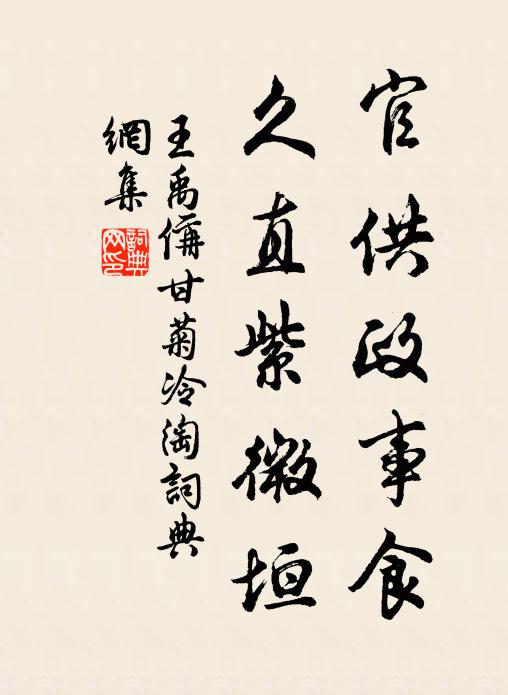 官供政事食
久直紫微垣
王禹偁甘菊冷淘詞典
網集
詞典網印